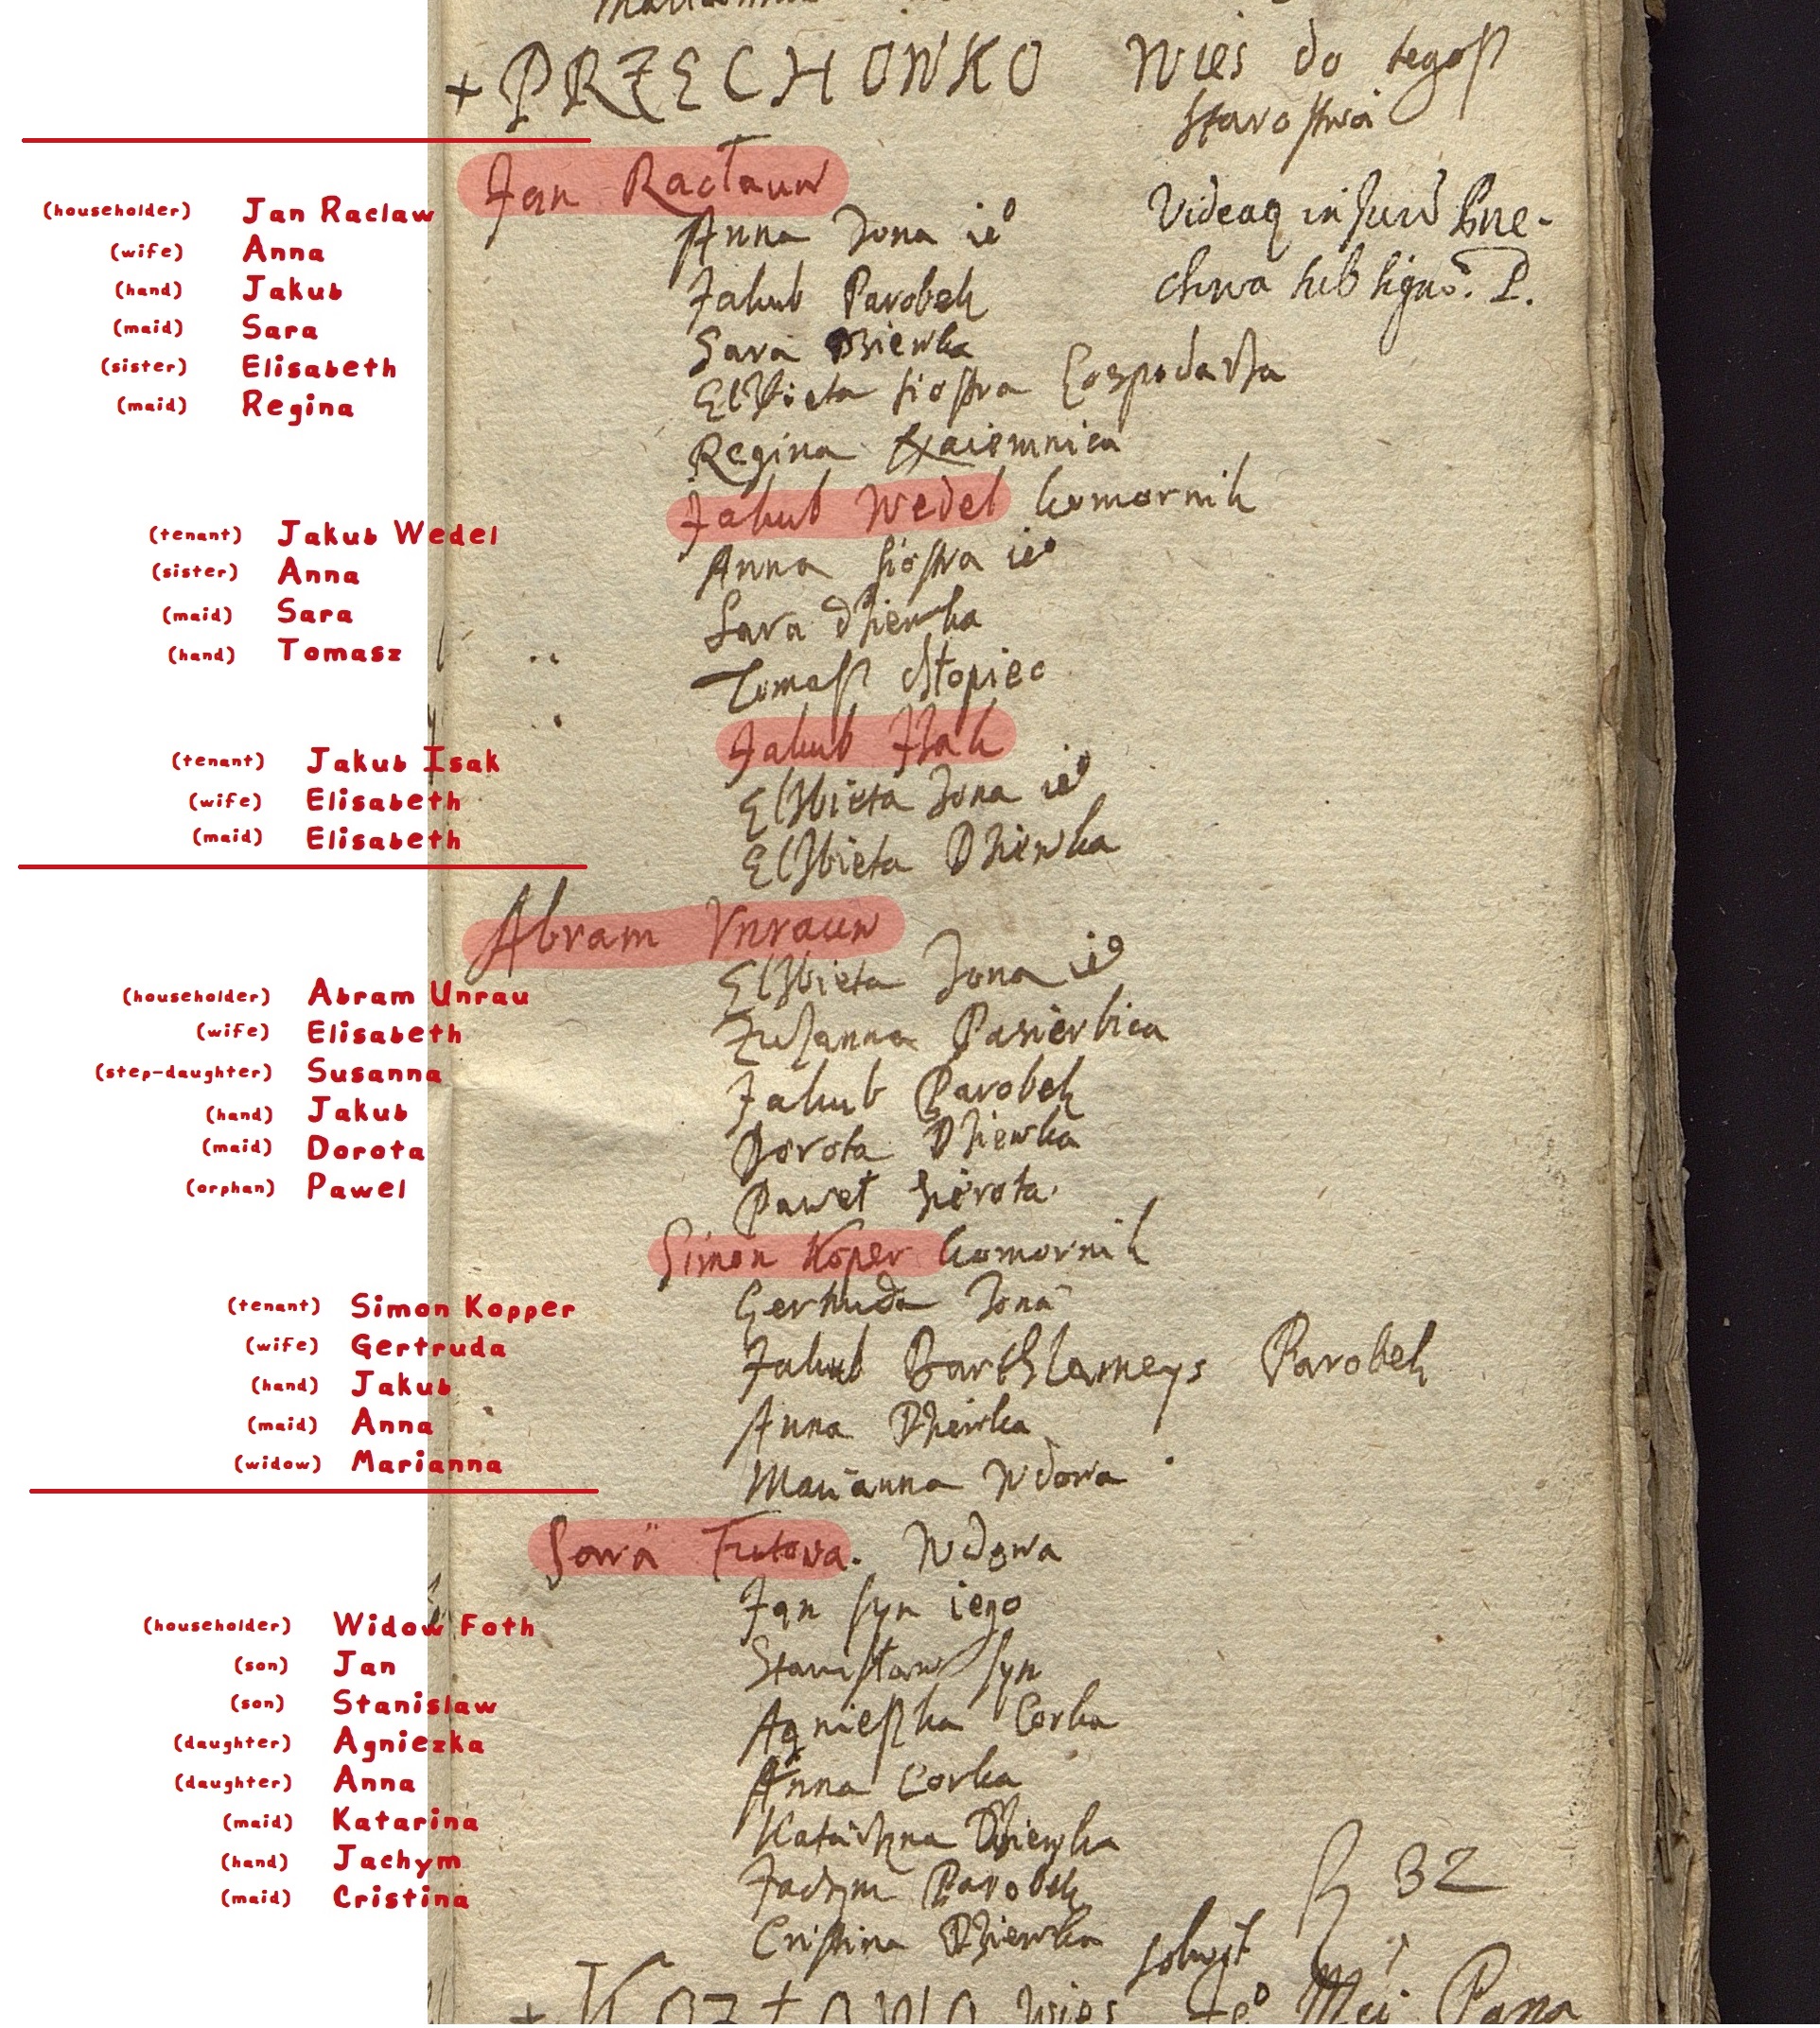 + PRZECHOWKO Wies do tegosz
starostwa
Jan Racław
(householder) Jan Raclaw
Anna Zona ie°
(wife) Anna
Jakub Parobek
(hand) Jakub
Sara Dziewka
(maid) Sara
Elzbieta siostra Gospodarza
(sister) Elisabeth
Regina
(maid) Regina
Jakub Wedel komornik
(tenant) Jakub Wedel
Anna siostra ie°
(sister) Anna
Sara dziewka
(maid) Sara
Tomasz chłopiec
(hand) Tomasz
Jakub Isak
(tenant) Jakub Isak
Elzbieta Zona ie°
(wife) Elisabeth
Elzbieta Dziewka
(maid) Elisabeth
Abram Vnrauw
(householder) Abram Unrau
Elzbieta Zona ie°
(wife) Elisabeth
Zuzanna Pasierbica
(step-daughter) Susanna
Jakub Parobek
(hand) Jakub
Dorota Dziewka
(maid) Dorota
Paweł sierota
(orphan) Pawel
Simon Koper komornik
(tenant) Simon Kopper
Gertruda Zona
(wife) Gertruda
Jakub Barthlameys Parobek
(hand) Jakub
Anna Dziewka
(maid) Anna
Marianna Wdowa
(widow) Marianna
Futowa. Wdowa
(householder) Widow Foth
Jan syn iego
(son) Jan
Stanisław syn
(son) Stanislaw
Agnieszka Corka
(daughter) Agniezka
Anna Corka
(daughter) Anna
Katarzyna Dziewka
(maid) Katarina
Jachym Parobek
(hand) Jachym
Cristina Dziewka
(maid) Cristina
32
wies Pana